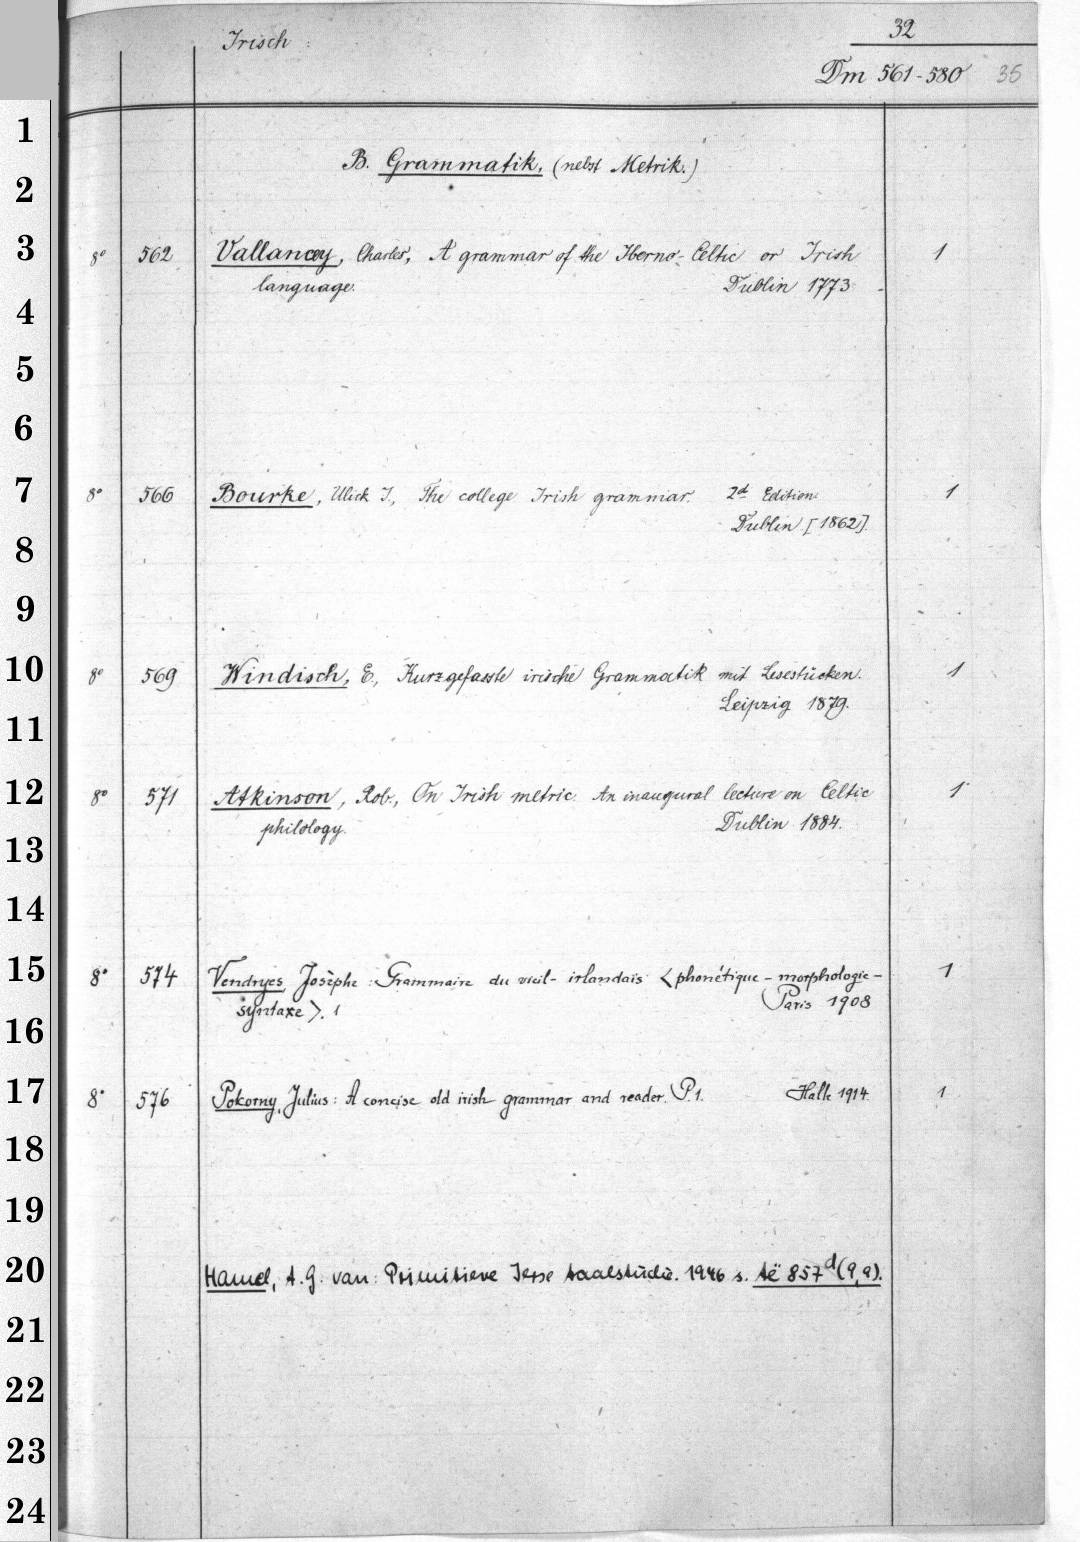 Irisch :
32
Dm 561-580 35
B. Grammatik. (nebst Metrik.)
1
2
3 8° 562 Vallancey, Charles, A grammar of the Iberno-Celtic or Irish 1
language. Dublin 1773.
4
5
6
7 8° 566 Bourke, Ulick J., The college Irish grammar. 2d Edition. 1
Dublin [1862].
8
9
10 8° 569 Windisch, E., Kurzgefasste irische Grammatik mit Lesestücken. 1
Leipzig 1879.
11
12 8° 571 Atkinson, Rob., On Irish metric. An inaugural lecture on Celtic 1
philology. Dublin 1884.
13
14
15 8° 574 Vendryes, Josèphe : Grammaire du vieil-irlandais <phonétique - morphologie - 1
syntaxe>. 1 Paris 1908
16
17 8° 576 Pokorny, Julius: A concise old irish grammar and reader. P. 1. Halle 1914. 1
18
19
20 Hamel, A. G. van: Primitieve Ierse taalstudie. 1946 s. të 857d (9,9).
21
22
23
24